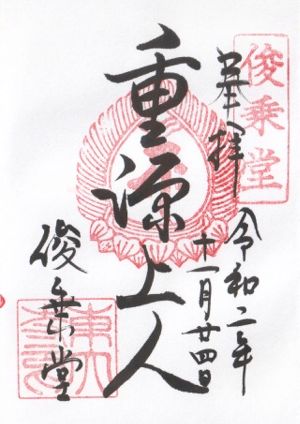 俊乗堂
奉拝
令和二年
十一月廿四日
重源上人
俊乗堂